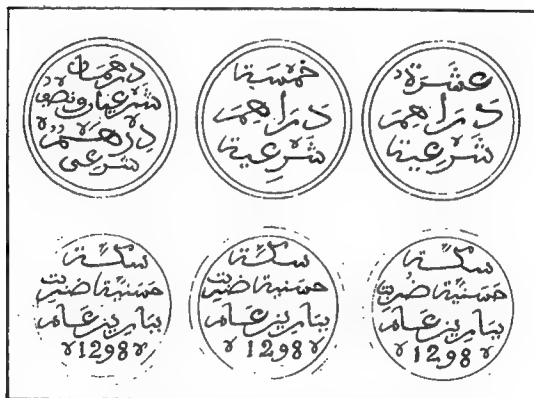 عشرة
دراهم
شرعية
خمسة
دراهم
شرعية
درهمان
شرعيان ونصف
درهم
شرعي
سكة
حسنية ضربت
بباريز عام
1298
سكة
حسنية ضربت
بباريز عام
1298
سكة
حسنية ضربت
بباريز عام
1298